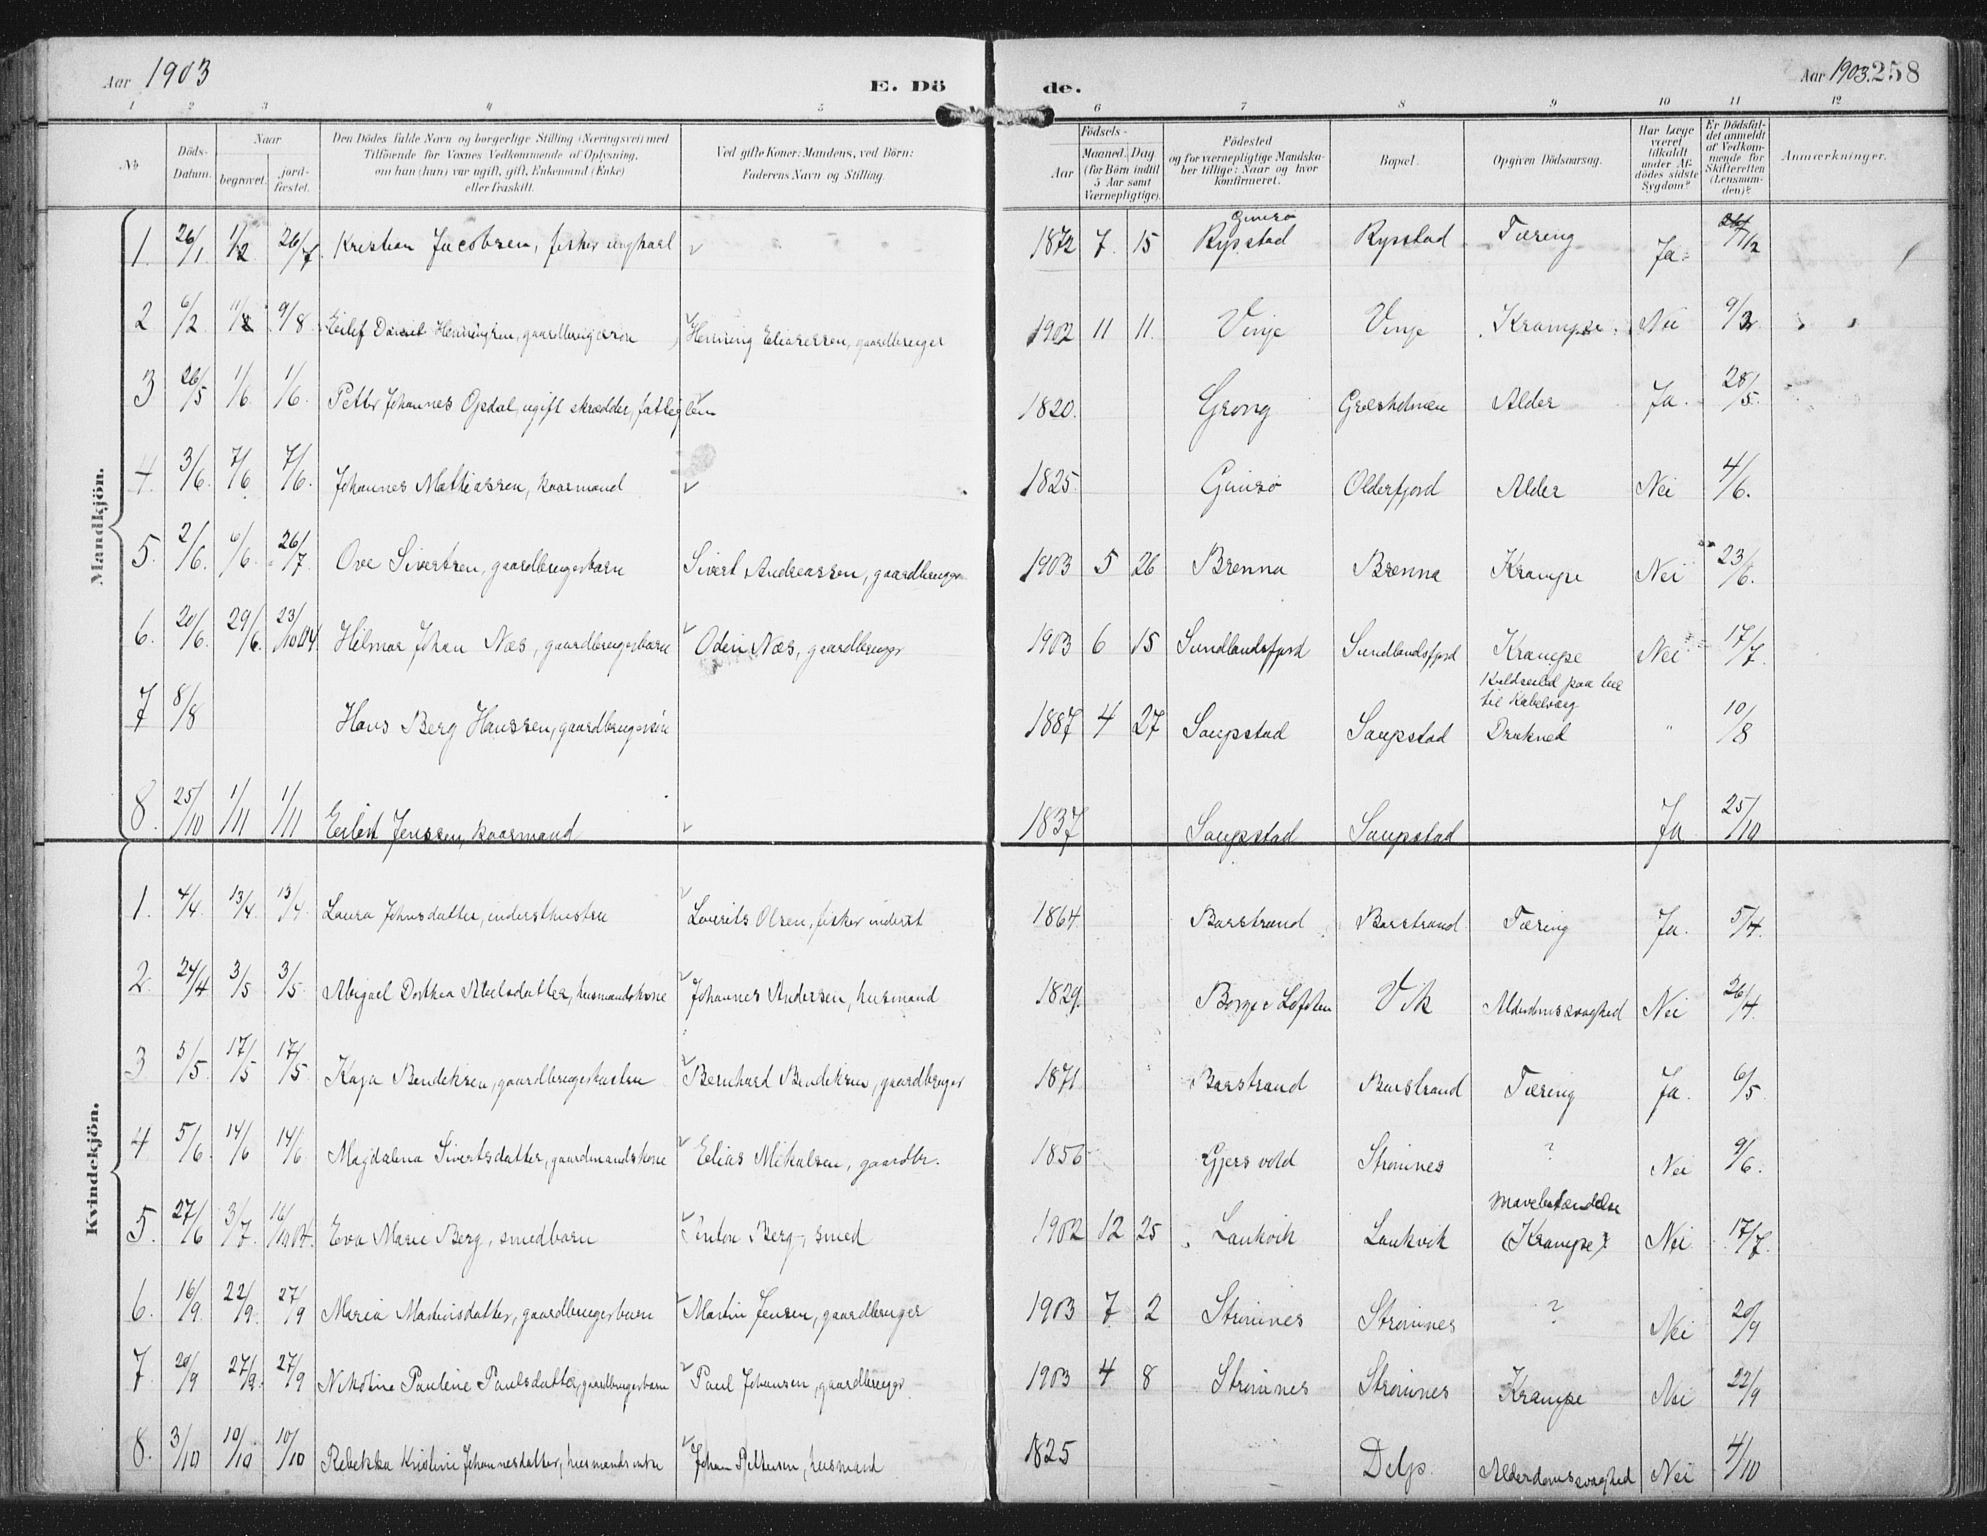 Aar 1903 E. Dö de. Aar 1903. 258
1 2 3 4 5 6 7 8 9 10 11 12
No
Döds-Datum.
Naar
begravet.
jord-fæstet.
Den Dödes fulde Navn og borgerlige Stilling (Næringsvei) med
Tilföiende for Voxnes Vedkommende af Oplysning,
om han (hun) var ugift, gift, Enkemand (Enke)
eller fraskilt.
Ved gifte Koner: Mandens, ved Börn:
Faderens Navn og Stilling.
Födsels-
Aar
Maaned. Dag
(for Börn indtil
5 Aar samt
Værnepligtige).
Födested
og for værnepligtige Mandska-
ber tillige: Naar og hvor
konfirmeret.
Bopæl.
Opgiven Dödsaarsag.
Har Læge
været
tilkaldt
under Af-
dödes sidste
Sygdom?
Er Dödsfal-
det anmeldt
af Vedkom-
mende for
Skifteretten
(Lensman-
den)?
Anmærkninger.
Mandkjön.
1. 26/1 1/2 26/7 Kristian Jacobsen, fisker ungkarl 1872 7 15 Gimsø Rypstad Rypstad Tæring Ja 1/2
2 6/2 9/8 Eilef Daniel Henningsen, gaardbrugersøn Henning Eliassen, gaardbruger 1902 11 11. Vinje Vinje Krampe Nei
3 26/5 1/6 1/6. Petter Johannes Opdal, ugift skrædder, fattiglem 1820. Grong Græsholmen Alder Ja. 28/5.
4. 3/6. 7/6 7/6. Johannes Mathiassen, kaarmand 1825. Gimsø Olderfjord Alder Nei 4/6.
5. 2/6 6/6. 26/7 Ove Sivertsen, gaardbrugerbarn Sivert Andreassen, gaardbruger 1903 5 26 Brenna Brenna Krampe Nei 23/6.
6. 20/6. 29/6. 23/10 04. Hilmar Johan Næs, gaardbrugerbarn Odin Næs, gaardbruger 1903 6 15 Sundlandsfjord Sundlandsfjord Krampe Nei 17/7.
7 8/8 Hans Berg Hanssen, gaardbrugersøn 1887 4 27 Saupstad Saupstad Kuldseilet paa til Kabelvaag Druknet " 10/8
8. 25/10 1/11 1/11 Eilert Jenssen, kaarmand 1837 Saupstad Saupstad Ja 25/10
Kvindekjön.
1. 4/4. 13/4. 13/4 Laura Johnsdatter, indersthustru Laurits Olsen, fisker inderst 1864. Barstrand Barstrand Tæring Ja. 5/4.
2. 24/4 3/5 3/5. Abigael Dorthea Abelsdatter, husmandskone Johannes Andersen, husmand 1829. Borge i Lofoten Vik Alderdomssvaghed Nei 26/4.
3 5/5. 17/5 17/5. Kaja Bendiksen, gaardbrugerhustru Bernhard Bendiksen, gaardbruger 1871. Barstrand Barstrand Tæring Ja. 6/5.
4 5/6. 14/6 14/6 Magdalena Sivertsdatter, gaardmandskone Elias Mikalsen, gaardbr. 1856 Gjersvold Strømnes ? Nei 9/6.
5. 27/6 3/7. 16/10 04. Eva Marie Berg, smedbarn Anton Berg, smed 1902 12 25 Laukvik Laukvik Mavebetændelse (Krampe) Nei 17/7.
6. 16/9 22/9. 27/9 Maria Martinsdatter, gaardbrugerbarn Martin Jensen, gaardbruger 1903 7 2 Strømnes Strømnes ? Nei 20/9
7. 20/9 27/9. 27/9 Nikoline Pauline Paulsdatter, gaardbrugerbarn Paul Johansen, gaardbruger. 1903 4 8 Strømnes Strømnes Krampe Nei 22/9
8. 3/10 10/10 10/10 Rebekka Kristine Johannesdatter, husmandsenke Johan Pettersen, husmand 1825 Delp Alderdomssvaghed Nei 4/10